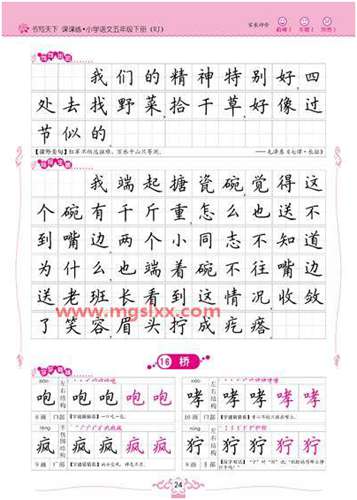 书写天下 课课练·小学语文五年级下册（RJ）
我们的精神特别好,四
处去找野菜,拾干草,好像过
节似的。
【课外美句】红军不怕远征难，万水千山只等闲。
——毛泽东《七律·长征》
我端起搪瓷碗,觉得这
个碗有千斤重,怎么也送不
到嘴边。两个小同志不知道
为什么,也端着碗不往嘴边
送。老班长看到这情况,收敛
了笑容,眉头拧成疙瘩。
www.mgslxx.com
16 桥
páo
xiāo
咆 咆 咆 咆 左右结构
哮 哮 哮 哮 左右结构
8画 口部
10画 口部
fēng
níng
疯 疯 疯 疯 半包围结构
狞 狞 狞 狞 左右结构
9画 疒部
8画 犭部
24